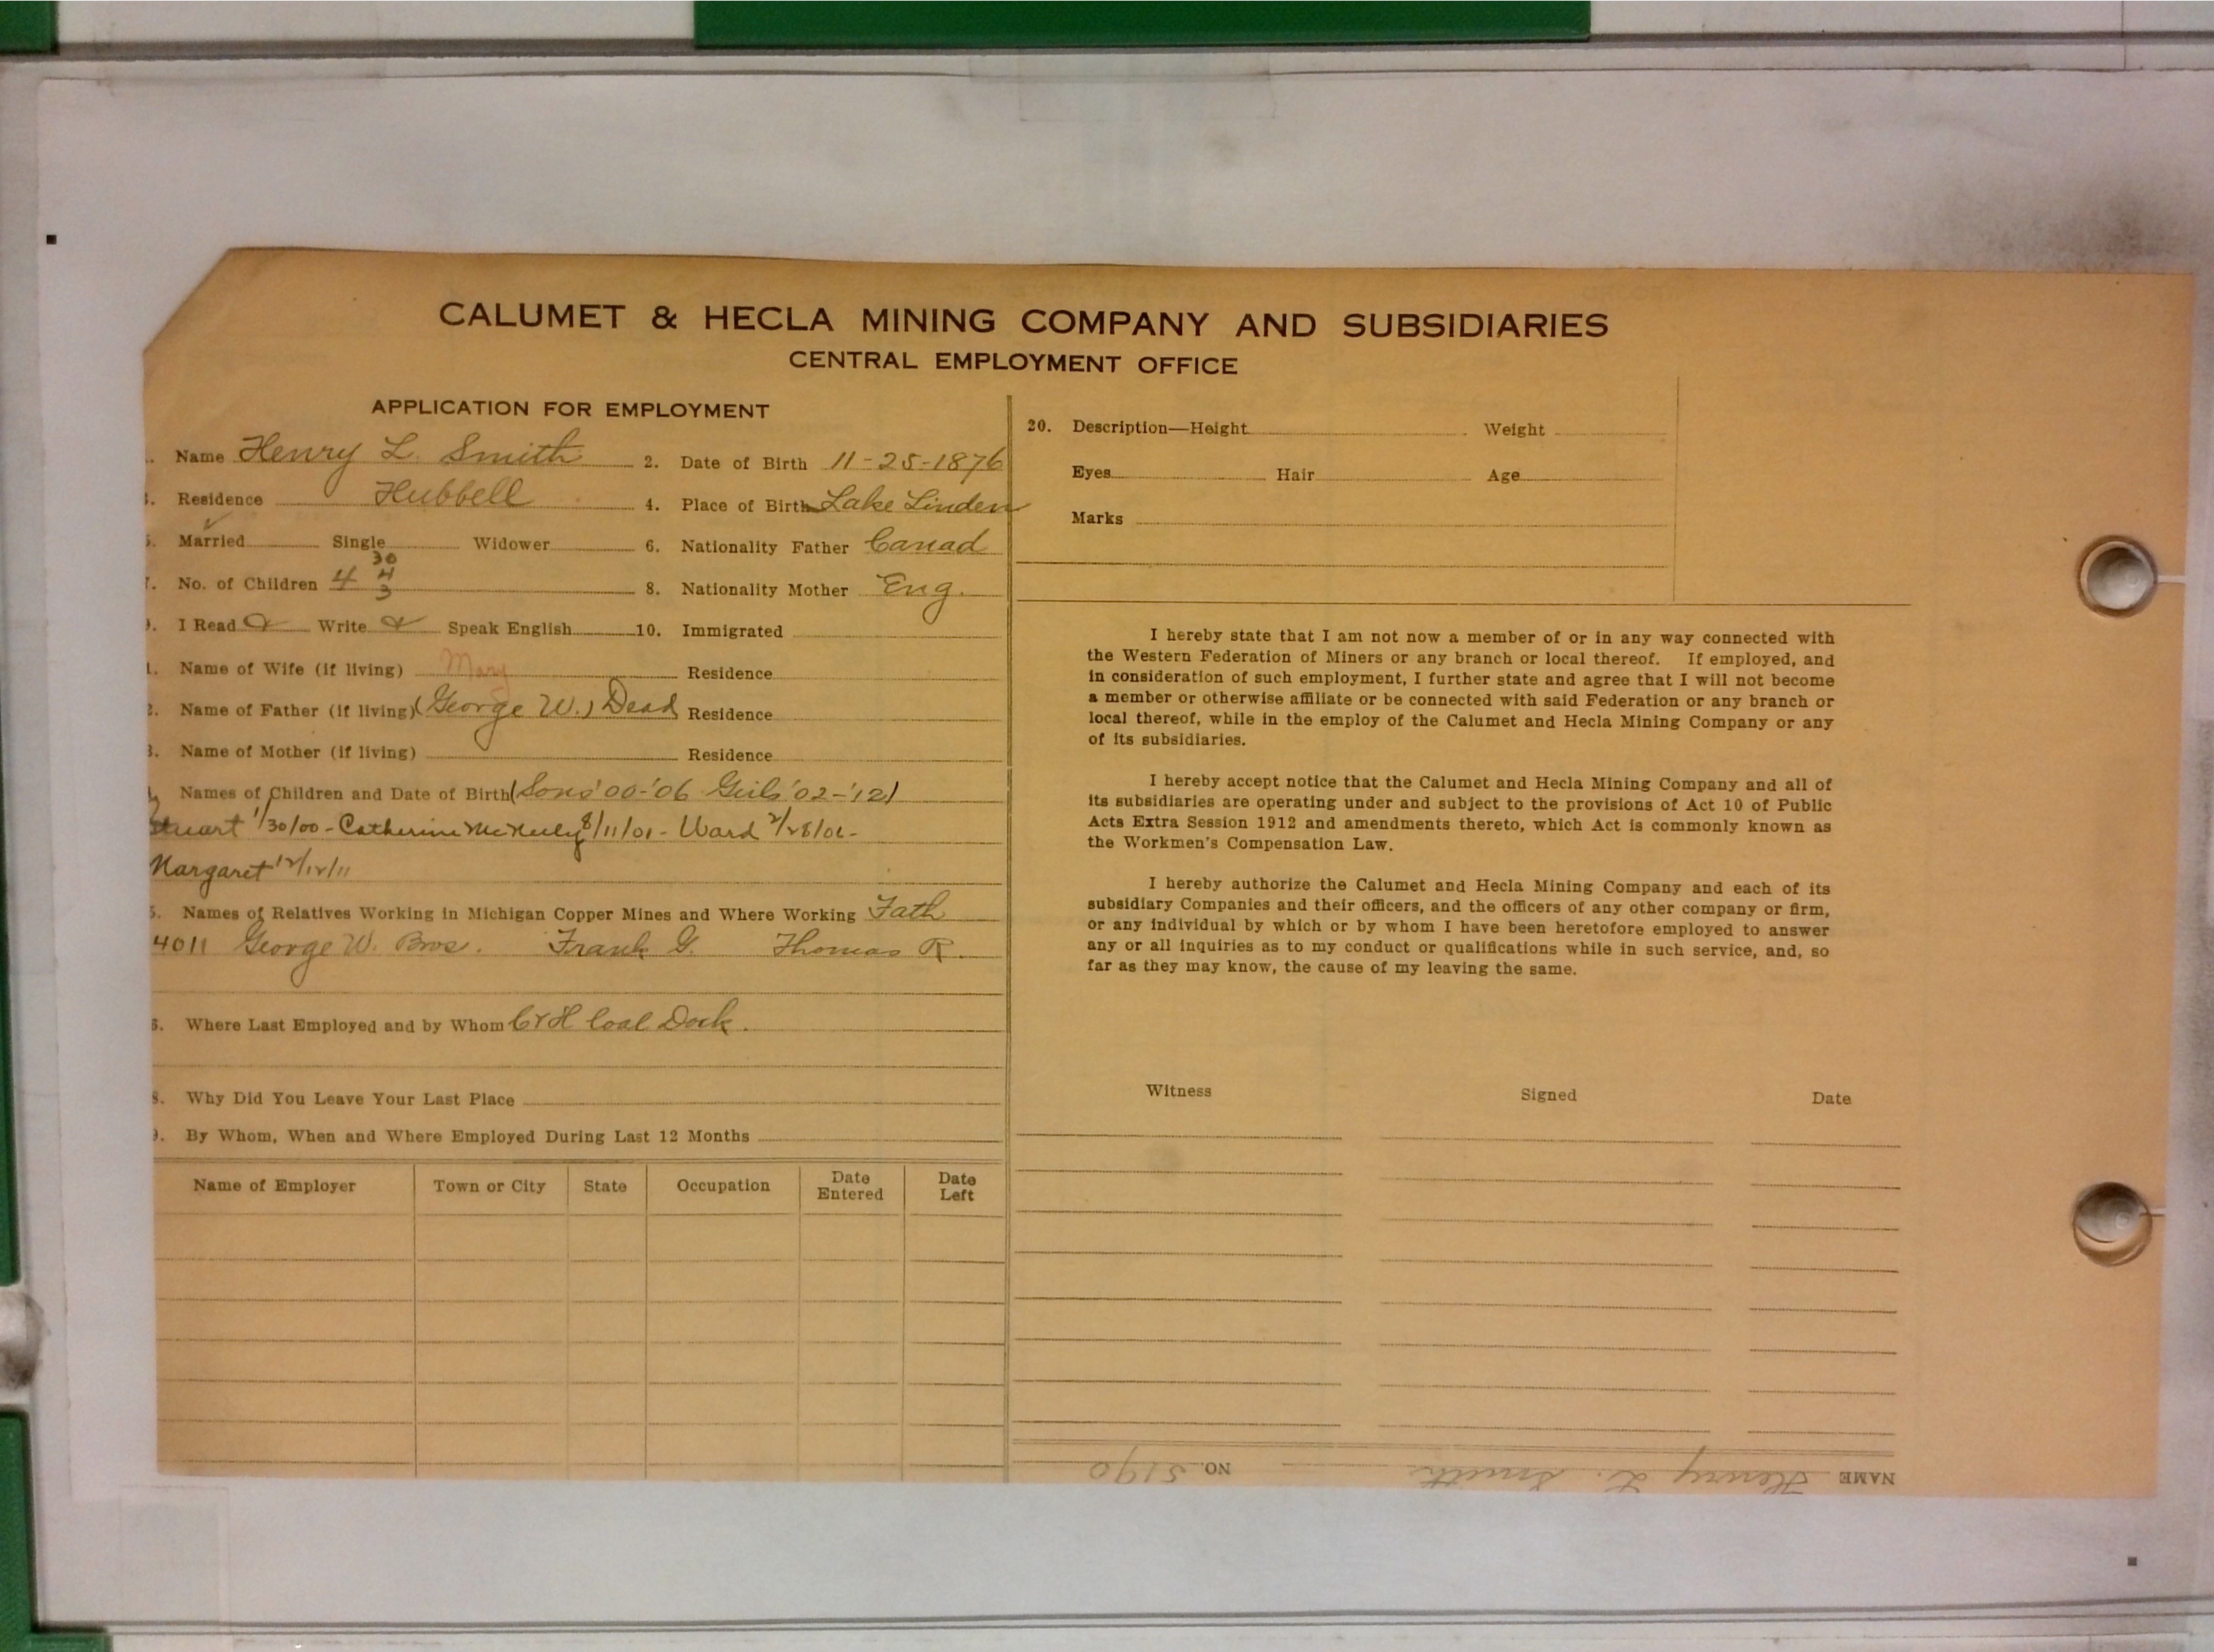 CALUMET & HECLA MINING COMPANY AND SUBSIDIARIES
CENTRAL EMPLOYMENT OFFICE
APPLICATION FOR EMPLOYMENT
Name Henry L. Smith 2. Date of Birth 11-25-1876
Residence Hubbell 4. Place of Birth Lake Linden
Married Single Widower 6. Nationality Father Canad
30
No. of Children 4 4 8. Nationality Mother Eng.
3
I Read Write Speak English 10. Immigrated
Name of Wife (if living) Mary Residence
Name of Father (if living) (George W.) Dead Residence
Name of Mother (if living) Residence
Names of Children and Date of Birth (Sons '00-'06 Girls '02-'12)
Stuart 1/30/00 - Catherine McNeely 8/11/01 - Ward 2/28/06 -
Margaret 12/12/11
5. Names of Relatives Working in Michigan Copper Mines and Where Working Fath
4011 George W. Bros. Frank G. Thomas R.
6. Where Last Employed and by Whom C&H Coal Dock.
8. Why Did You Leave Your Last Place
9. By Whom, When and Where Employed During Last 12 Months
Name of Employer Town or City State Occupation Date Entered Date Left
20. Description—Height Weight
Eyes Hair Age
Marks
I hereby state that I am not now a member of or in any way connected with
the Western Federation of Miners or any branch or local thereof. If employed, and
in consideration of such employment, I further state and agree that I will not become
a member or otherwise affiliate or be connected with said Federation or any branch or
local thereof, while in the employ of the Calumet and Hecla Mining Company or any
of its subsidiaries.
I hereby accept notice that the Calumet and Hecla Mining Company and all of
its subsidiaries are operating under and subject to the provisions of Act 10 of Public
Acts Extra Session 1912 and amendments thereto, which Act is commonly known as
the Workmen's Compensation Law.
I hereby authorize the Calumet and Hecla Mining Company and each of its
subsidiary Companies and their officers, and the officers of any other company or firm,
or any individual by which or by whom I have been heretofore employed to answer
any or all inquiries as to my conduct or qualifications while in such service, and, so
far as they may know, the cause of my leaving the same.
Witness Signed Date
NAME Henry L. Smith NO. 5190